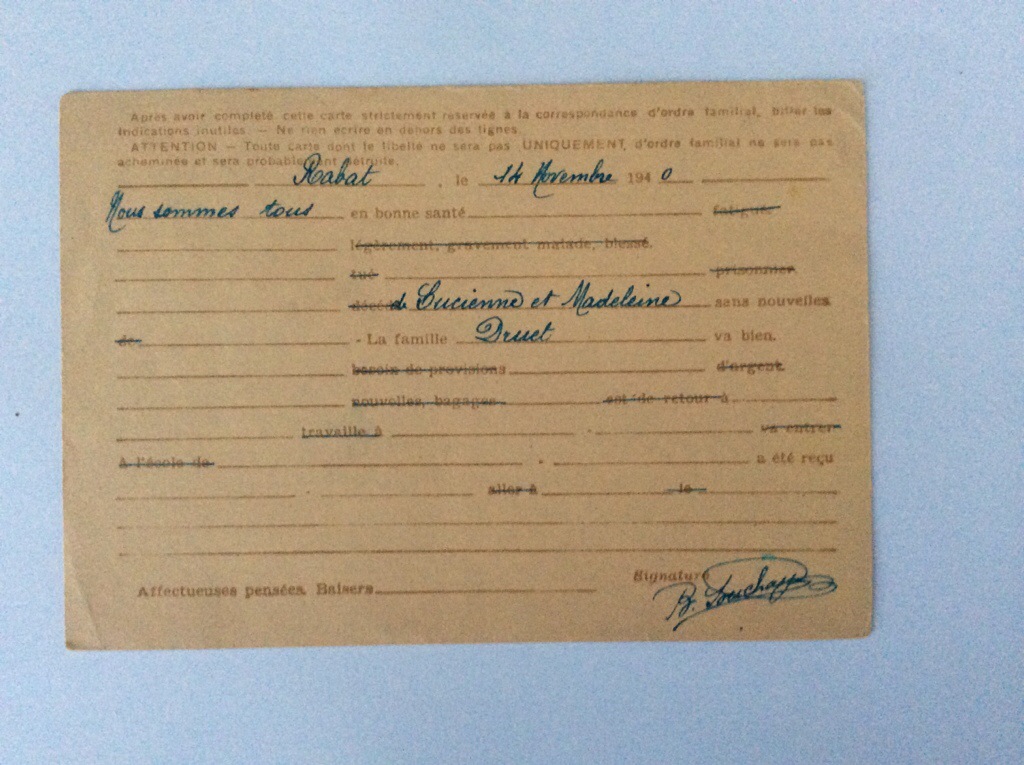 Après avoir complété cette carte strictement réservée à la correspondance d'ordre familial, biffer les
indications inutiles. — Ne rien écrire en dehors des lignes.
ATTENTION — Toute carte dont le libellé ne sera pas UNIQUEMENT, d'ordre familial ne sera pas
acheminée et sera probablement détruite.
Rabat, le 14 Novembre 1940
Nous sommes tous en bonne santé fatigué
légèrement, gravement malade, blessé.
tué prisonnier
décédé de Lucienne et Madeleine sans nouvelles
de - La famille Druet va bien.
besoin de provisions d'argent.
nouvelles, bagages est de retour à
travaille à va entrer
à l'école de a été reçu
aller à le
Affectueuses pensées. Baisers Signature
B.